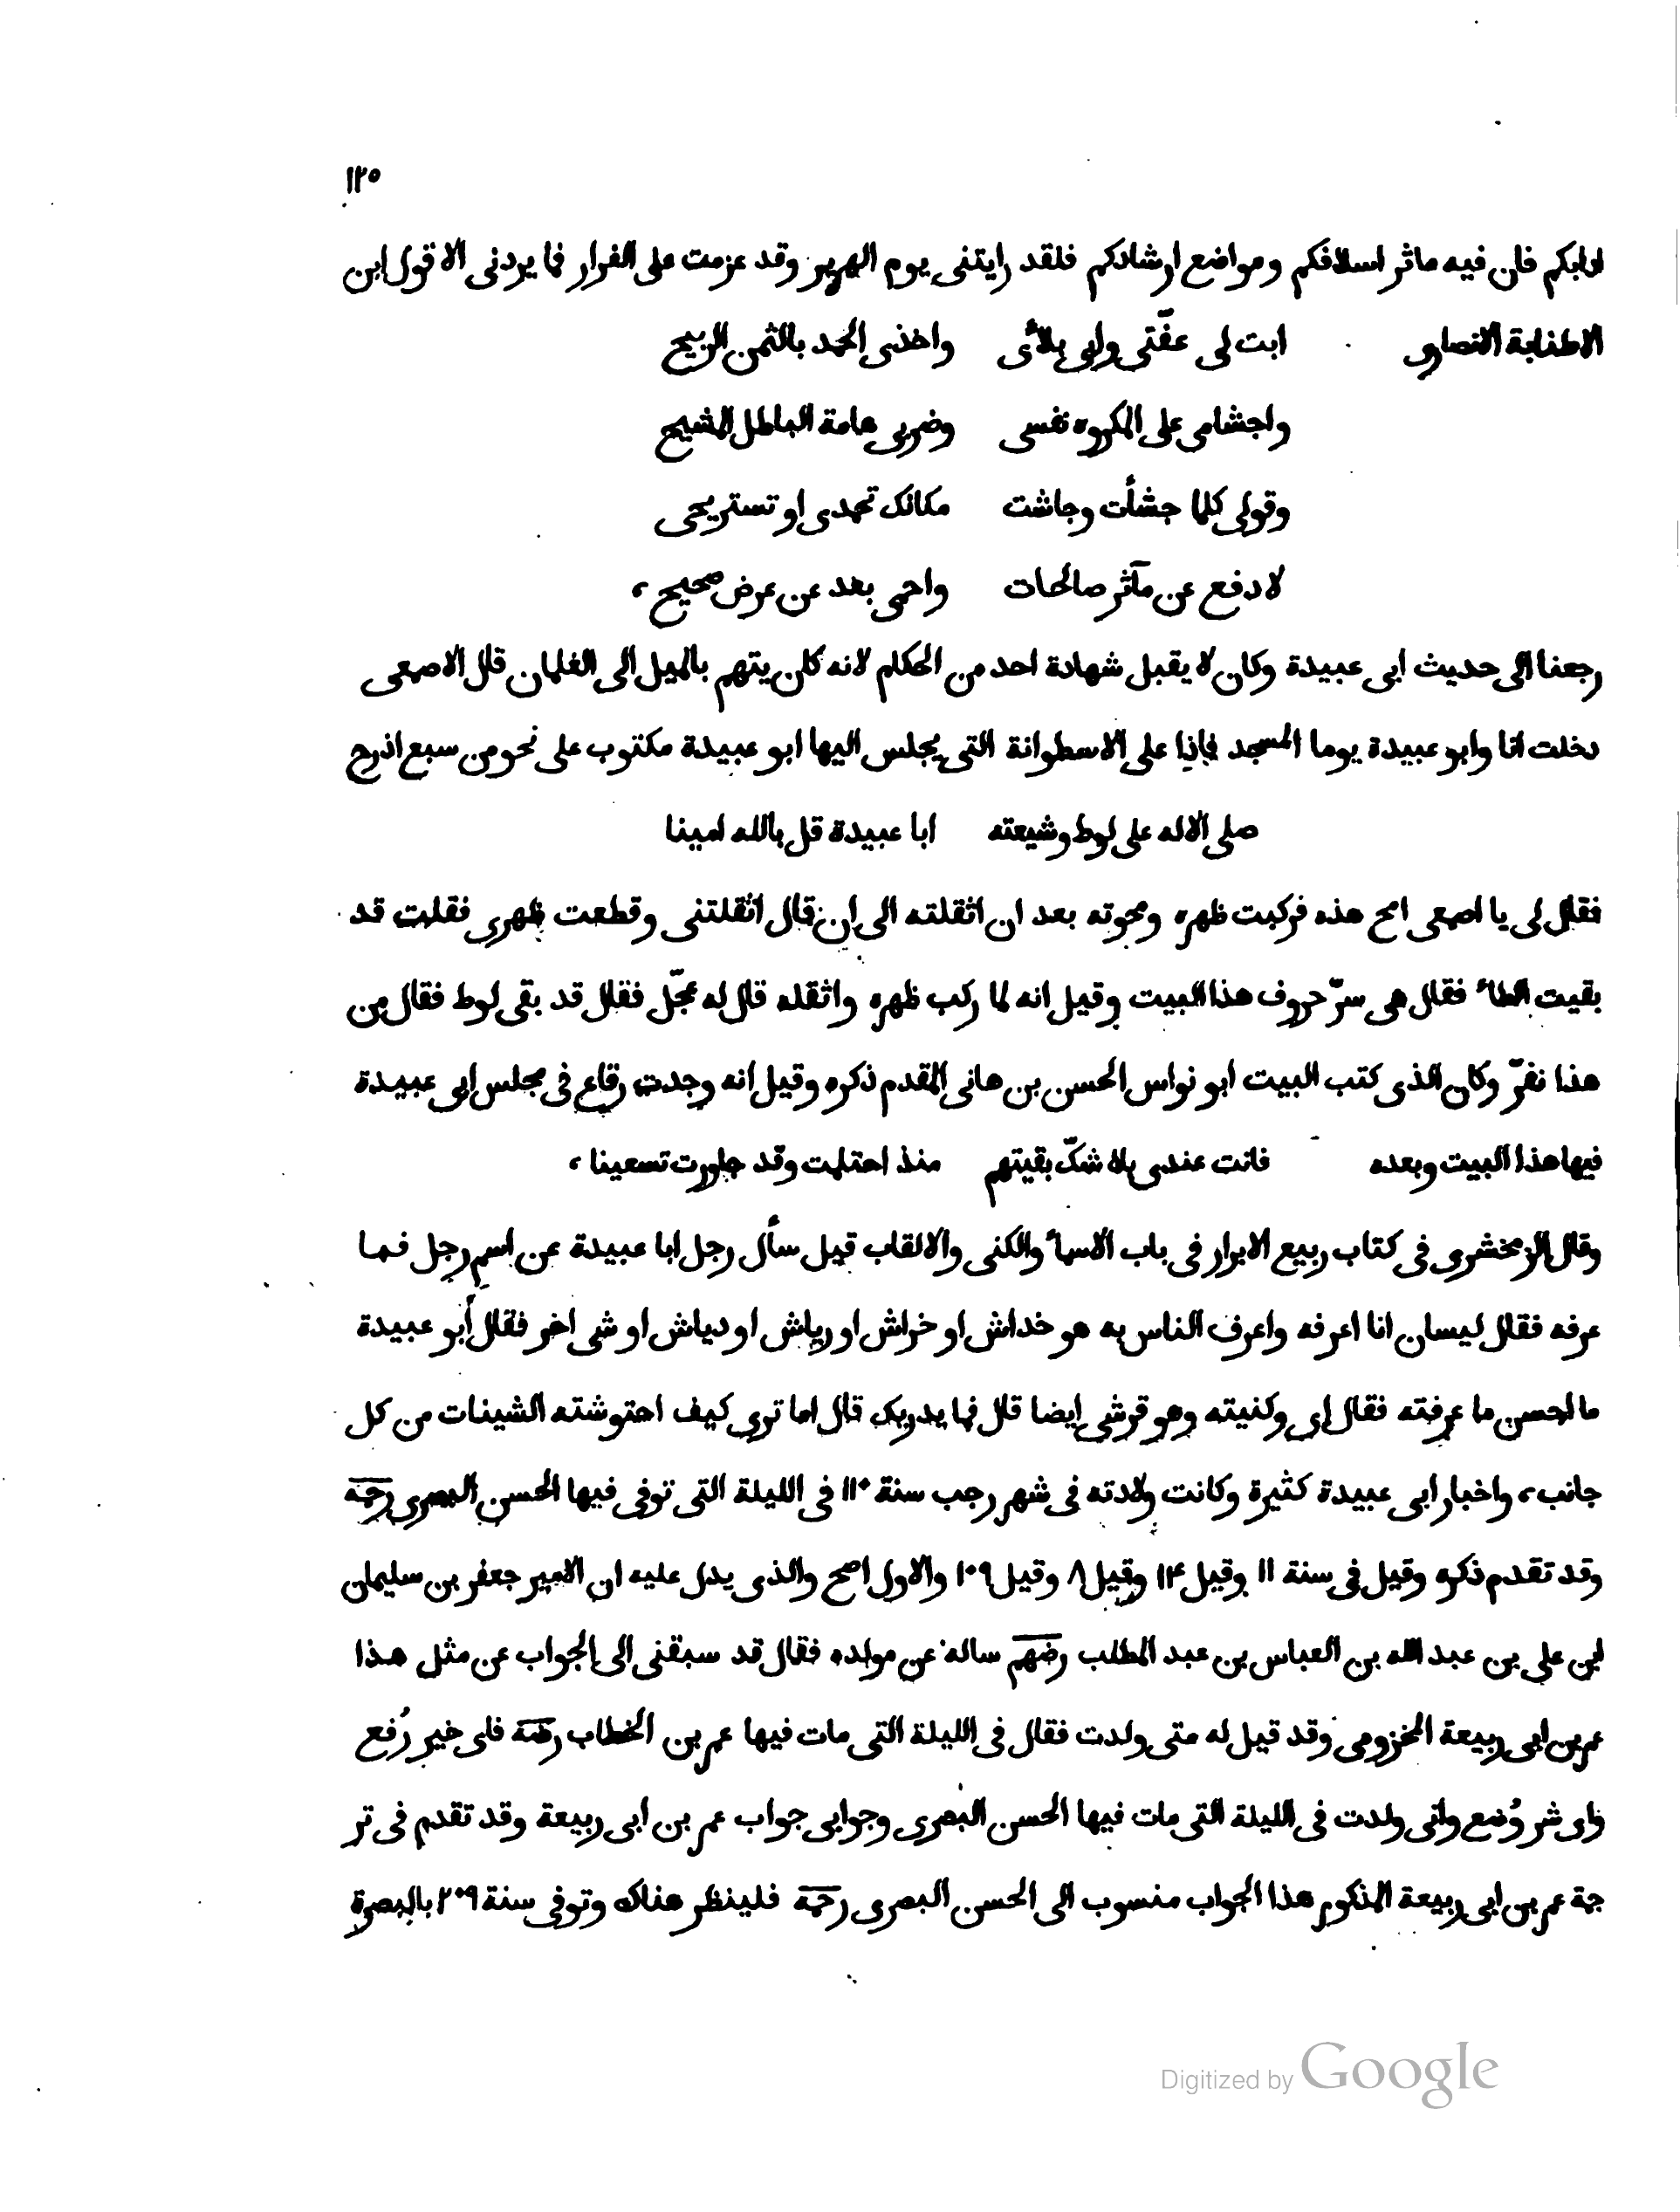 ١٢٥
ادابكم فان فيه ماثر اسلافكم ومواضع ارشادكم فلقد رايتنى يوم الهرير وقد عزمت على الفرار فما يردنى الا قول ابن
الاطنابة الانصارى ابت لى عفّتى وابى بلأى واخذى الحمد بالثمن الربيح
واجشامى على المكروه نفسى وضربى هامة الباطل المشيح
وقولى كلما جشأت وجاشت مكانك تحمدى او تستريحى
لادفع عن مآثر صالحات واحمى بعد عن عرض صحيح،
رجعنا الى حديث ابى عبيدة وكان لا يقبل شهادة احد من الحكام لانه كان يتهم بالميل الى الغلمان قال الاصمعى
دخلت انا وابو عبيدة يوما المسجد فاذا على الاسطوانة التى يجلس اليها ابو عبيدة مكتوب على نحو من سبع اذرع
صلى الاله على لوط وشيعته ابا عبيدة قل بالله امينا
فقال لى يا اصمعى امح هذه فركبت ظهره ومحوته بعد ان اثقلته الى ان قال اثقلتنى وقطعت ظهرى فقلت قد
بقيت الطأ فقال هى سرّ حروف هذا البيت وقيل انه لما ركب ظهره واثقله قال له عجّل فقال قد بقى لوط فقال من
هذا نفرّ وكان الذى كتب البيت ابو نواس الحسن بن هانى المقدم ذكره وقيل انه وجدت رقاع فى مجلس ابى عبيدة
فيها هذا البيت وبعده فانت عندى بلا شكّ بقيتهم منذ احتلمت وقد جاورت تسعينا،
وقال الزمخشرى فى كتاب ربيع الابرار فى باب الاسمأ والكنى والالقاب قيل سأل رجل ابا عبيدة عن اسم رجل فما
عرفه فقال ليسان انا اعرفه واعرف الناس به هو خداش او خراش او رياش او دياش او شى اخر فقال أبو عبيدة
ما احسن ما عرفته فقال اى وكنيته وهو قرشى ايضا قال فما يدريك قال اما ترى كيف احتوشته الشينات من كل
جانب، واخبار ابى عبيدة كثيرة وكانت ولادته فى شهر رجب سنة ١١٠ فى الليلة التى توفى فيها الحسن البصرى رحمه
وقد تقدم ذكره وقيل فى سنة ١١ وقيل ١٤ وقيل ٨ وقيل ١٠٩ والاول اصح والذى يدل عليه ان الامير جعفر بن سليمان
ابن على بن عبد الله بن العباس بن عبد المطلب رضهم ساله عن مولده فقال قد سبقنى الى الجواب عن مثل هذا
عمر بن ابى ربيعة المخزومى وقد قيل له متى ولدت فقال فى الليلة التى مات فيها عمر بن الخطاب رضه فاى خير رُفع
واى شر وُضع وانى ولدت فى الليلة التى مات فيها الحسن البصرى وجوابى جواب عمر بن ابى ربيعة وقد تقدم فى تر
جمة عمر بن ابى ربيعة المذكور هذا الجواب منسوب الى الحسن البصرى رحمه فلينظر هناك وتوفى سنة ٢٠٩ بالبصرة
Digitized by Google